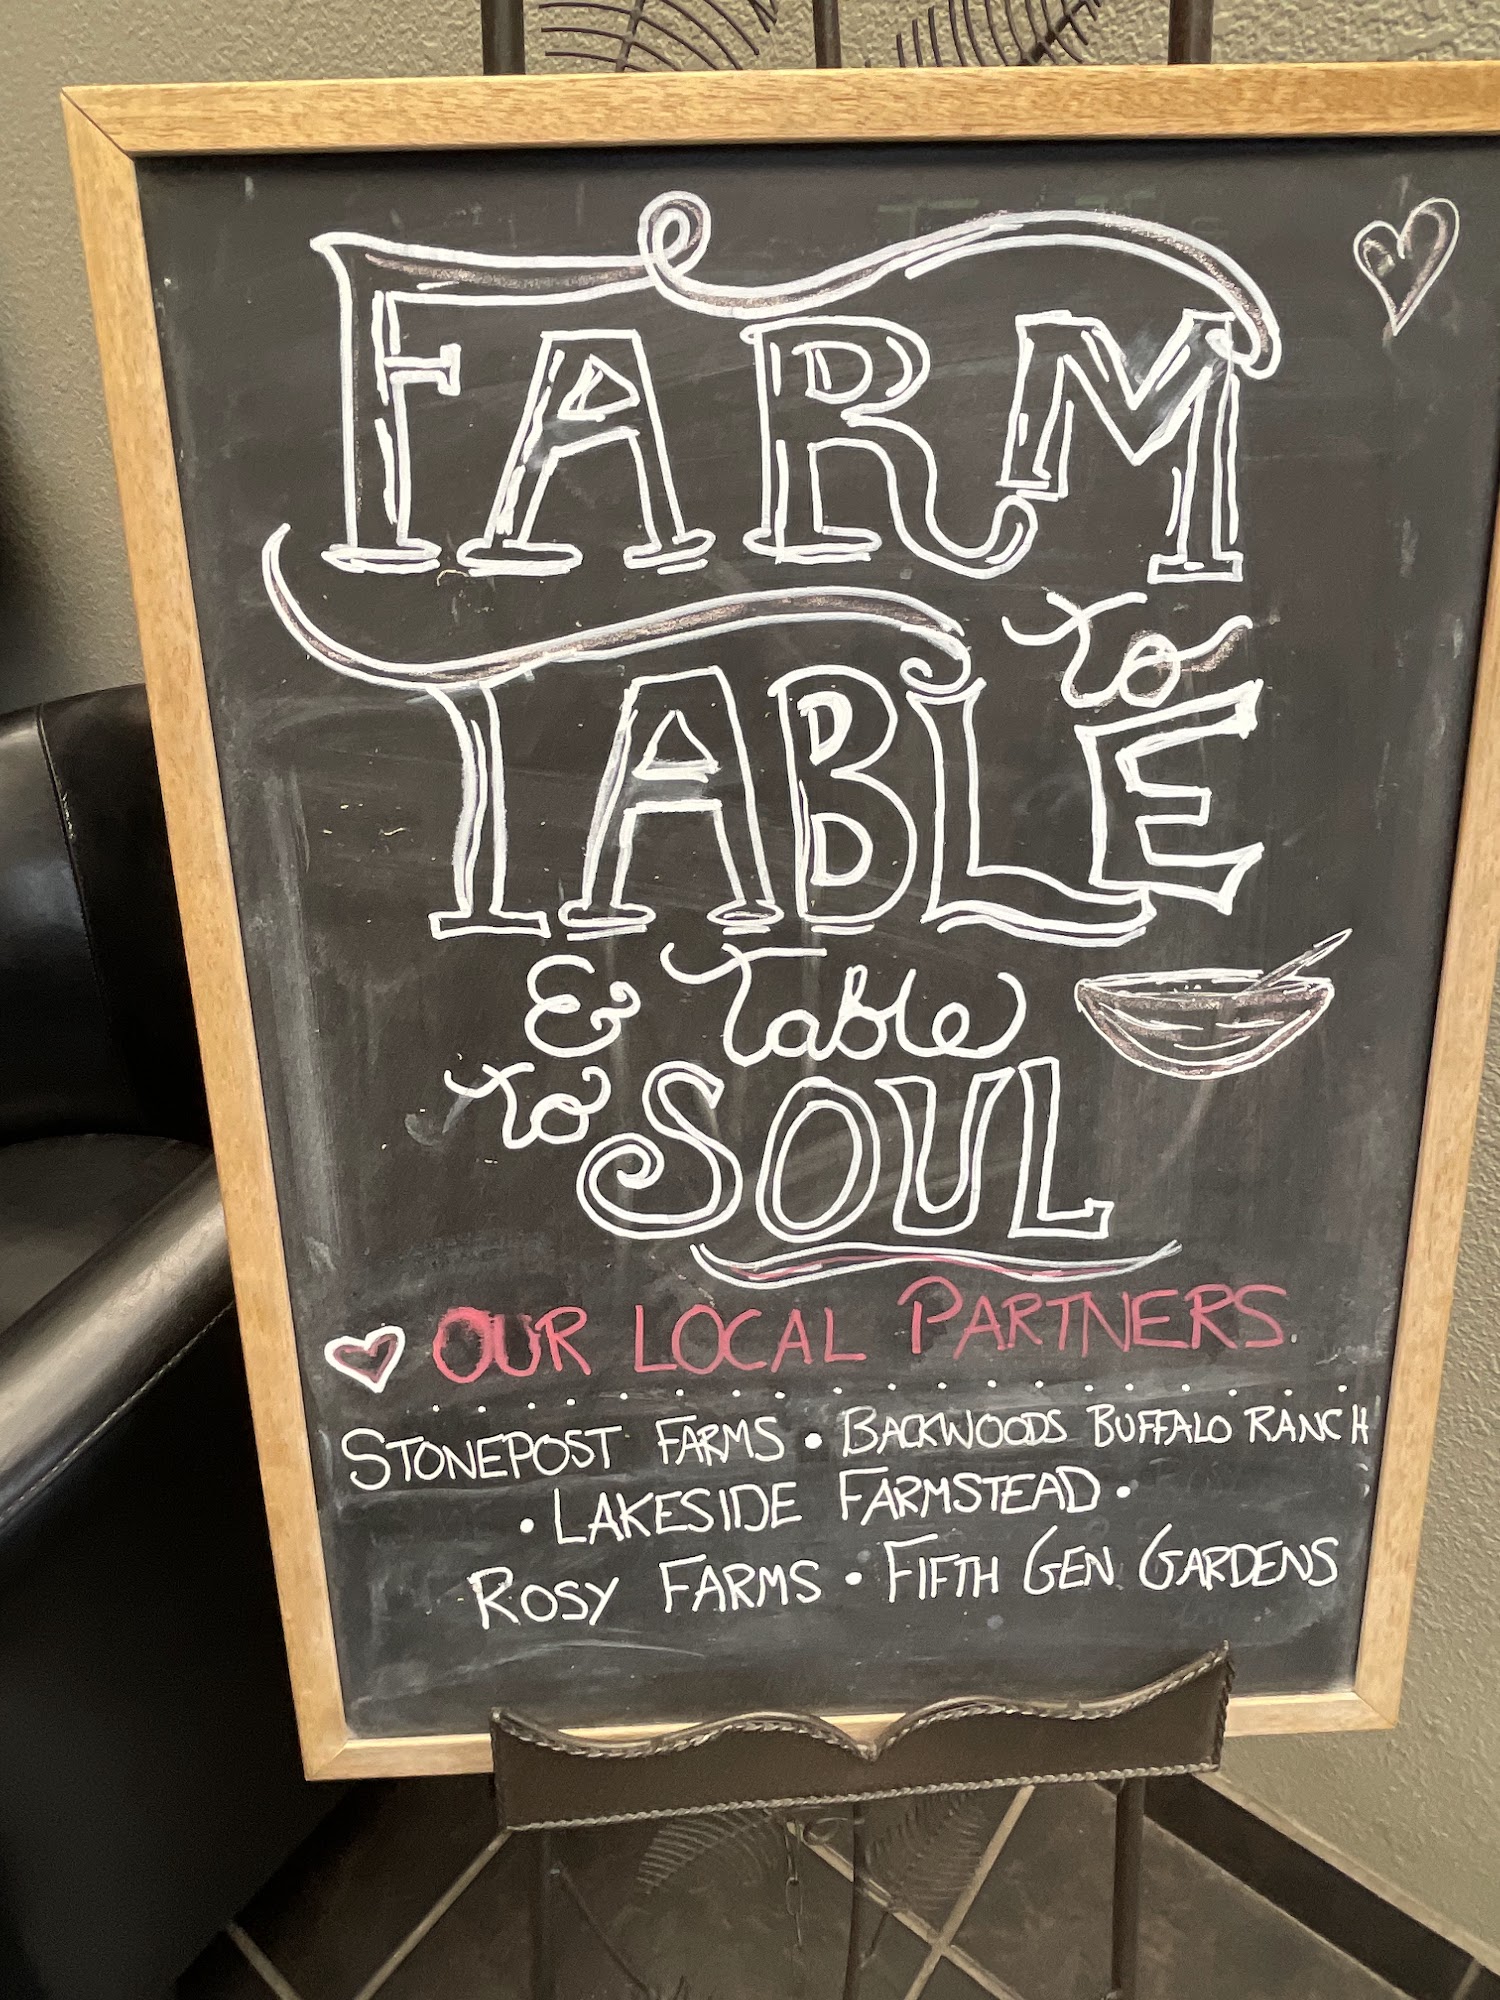 FARM
to
TABLE
& Table
to SOUL
OUR LOCAL PARTNERS
STONEPOST FARMS • BACKWOODS BUFFALO RANCH
• LAKESIDE FARMSTEAD •
ROSY FARMS • FIFTH GEN GARDENS